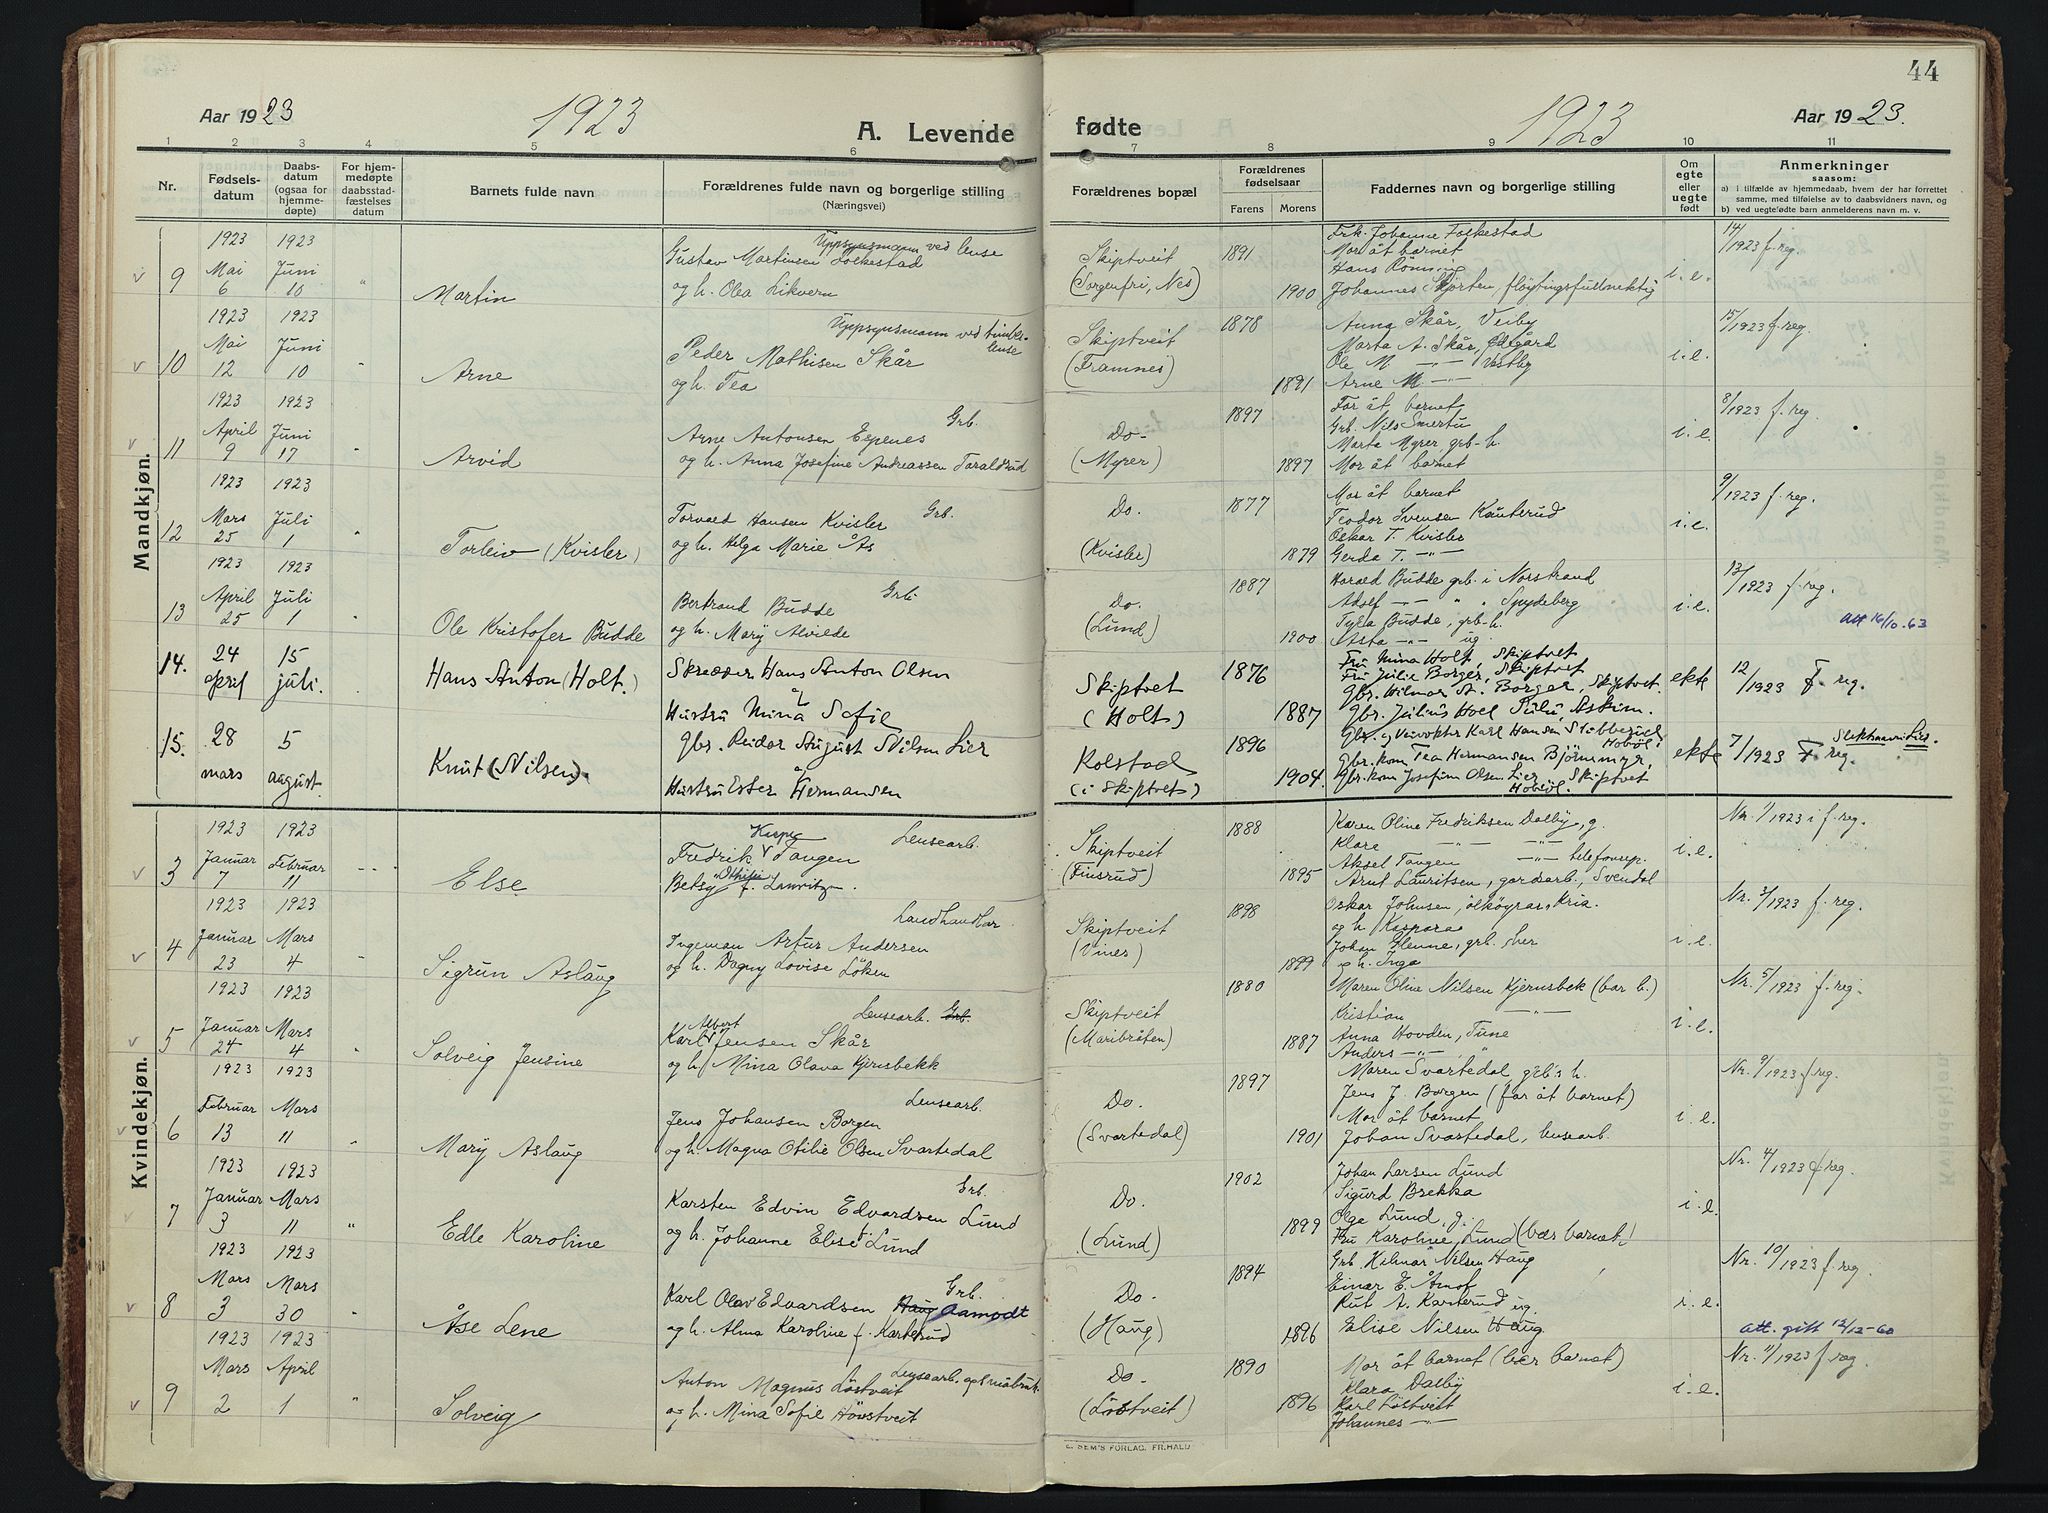 44
Aar 1923
1923
A. Levende
fødte
1923
Aar 1923.
1 2 3 4 5 6 7 8 9 10 11
Nr.
Fødsels-
datum
Daabs-
datum
(ogsaa for
hjemme-
døpte)
For hjem-
medøpte
daabsstad-
fæstelses
datum
Barnets fulde navn
Forældrenes fulde navn og borgerlige stilling
(Næringsvei)
Forældrenes bopæl
Forældrenes
fødselsaar
Farens Morens
Faddernes navn og borgerlige stilling
Om
egte
eller
uegte
født
Anmerkninger
saasom:
a) i tilfælde av hjemmedaab, hvem der har forrettet
samme, med tilføielse av to daabsvidners navn, og
b) ved uegtefødte barn anmelderens navn m. v.
Mandkjøn.
9
1923 Mai 6
1923 Juni 10
Martin
Uppsynsmann ved lense
Gustav Martinsen Folkestad
og h. Olea Likvern
Skiptveit
(Sorgenfri, Nes)
1891
1900
Frk. Johanne Folkestad
Mor åt barnet
Hans Rönning
Johannes Skjorten, fløytingsfullmektig
i. e.
14/1923 f. reg.
10
1923 Mai 12
1923 Juni 10
Arne
Uppsynsmann ved timbr-
lense
Peder Mathisen Skår
og h. Tea
Skiptveit
(Framnes)
1878
1891
Anna Skår, Veiby
Marta A. Skår,
Ole M. -"- Vestby
Arne M. -"-
i. e.
15/1923 f. reg.
11
1923 April 9
1923 Juni 17
Arvid
Grb.
Arne Antonsen Egenes
og h. Anna Josefine Andreassen Taraldrud
Do-
(Myrer)
1897
1897
Far åt barnet
Grb. Nils Smertu
Marta Myrer grb-h.
Mor åt barnet
i. e.
8/1923 f. reg.
12
1923 Mars 25
1923 Juli 1
Torleiv (Kvisler)
Grb.
Torvald Hansen Kvisler
og h. Helga Marie Ås
Do.
(Kvisler)
1877
1879
Mor åt barnet
Teodor Svensen Kauterud
Oskar T. Kvisler
Gerda T. -"-
i. e.
9/1923 f. reg.
13
1923 April 25
1923 Juli 1
Ole Kristofer Budde
Grb.
Bertrand Budde
og h. Mary Alvilde
Do.
(Lund)
1887
1900
Harald Budde grb. i Norstrand
Adolf -"- " " Spydeberg
Tyra Budde, grb-h.
Asta -"- ug.
i. e.
13/1923 f. reg.
Att 16/10-63
14.
24 april
15 juli.
Hans Anton (Holt.)
Skredder Hans Anton Olsen
og
Hustru Mina Sofie
Skiptvet
(Holt)
1876
1887
Fru Mina Holt, Skiptvet
Fru Julie Borger, Skiptvet
Gbr. Hilmar A. Borger, Skiptvet.
Gbr. Julius Hoel Sulu, Askim.
ekte
12/1923 F. reg.
15.
28 mars
5 august.
Knut (Nilsen).
Gbr. Reidar August Nilsen Lier
og
Hustru Ester Hermansen
Kolstad
(i Skiptvet)
1896
1904.
Gbr. og Karl Hansen Stubberud
Hobøl.
Gbr. kom Tea Hermansen Bjørnmyr,
Gbr. kom Josefine Olsen Lier, Skiptvet
Hobøl.
ekte
Slektsnavn Lier.
7/1923 F. reg.
Kvindekjøn.
3
1923 Januar 7
1923 Februar 11
Else
Lensearb.
Fredrik Tangen
Betsy f. Lauritzen.
Skiptveit
(Finsrud)
1888
1895
Karen Oline Fredriksen Dalby, g.
Klare -"- -"-
Aksel Tangen -"- telefonrep.
Arnt Lauritsen, gardsarb., Svendal
i. e.
Nr. 1/1923 i f. reg.
4
1923 Januar 23
1923 Mars 4
Sigrun Aslaug
Landhandlar
Ingeman Artur Andersen
og h. Dagny Lovise Löken
Skiptveit
(Vines)
1898
1899
Oskar Johnsen, ølköyrar, Kria.
og h. Kaspara
Johan Glenne, grb. her
og h. Inga
i. e.
Nr. 3/1923 f. reg.
5
1923 Januar 24
1923 Mars 4
Solveig Jensine
Lensearb. Grb.
Albert
Karl Jensen Skår
og h. Mina Olava Kjernsbekk
Skiptveit
(Maribråten)
1880
1887
Maren Oline Nilsen Kjernsbek (bar b.)
Kristian -"-
Anna Hovden, Tune
Anders -"- , "
i. e.
Nr. 5/1923 f. reg.
6
1923 Februar 13
1923 Mars 11
Mary Aslaug
Lensearb.
Jens Johansen Borgen
og h. Magna Otilie Olsen Svartedal
Do.
(Svartedal)
1897
1901
Maren Svartedal grb's h.
Jens J. Borgen (far åt barnet)
Mor åt barnet
Johan Svartedal, lensearb.
i. e.
Nr. 9/1923 f. reg.
7
1923 Januar 3
1923 Mars 11
Edle Karoline
Grb.
Karsten Edvin Edvardsen Lund
og h. Johanne Elise f. Lund
Do.
(Lund)
1902
1899
Johan Larsen Lund
Sigurd Brekka
Olga Lund, g.
Fru Karoline Lund (bar barnet)
i. e.
Nr. 4/1923 f. reg.
8
1923 Mars 3
1923 Mars 30
Åse Lene
Grb.
Karl Olav Edvardsen Haug Aamodt
og h. Alma Karoline f. Karterud
Do.
(Haug)
1894
1896
Grb. Hilmar Nilsen Haug
Einar E. Åmot
Rut A. Karterud ug.
Elise Nilsen Haug
i. e.
Nr. 10/1923 f. reg.
att. gitt 12/12-60
9
1923 Mars 2
1923 April 1
Solveig
Lensearb. og småbruk.
Anton Magnus Löstveit
og h. Mina Sofie Hövstveit
Do.
(Löstveit)
1890
1896
Mor åt barnet (bær barnet)
Klara Dalby
Karl Löstveit
Johannes -"-
i. e.
Nr. 11/1923 f. reg.
E. SEM'S FORLAG, FR.HALD